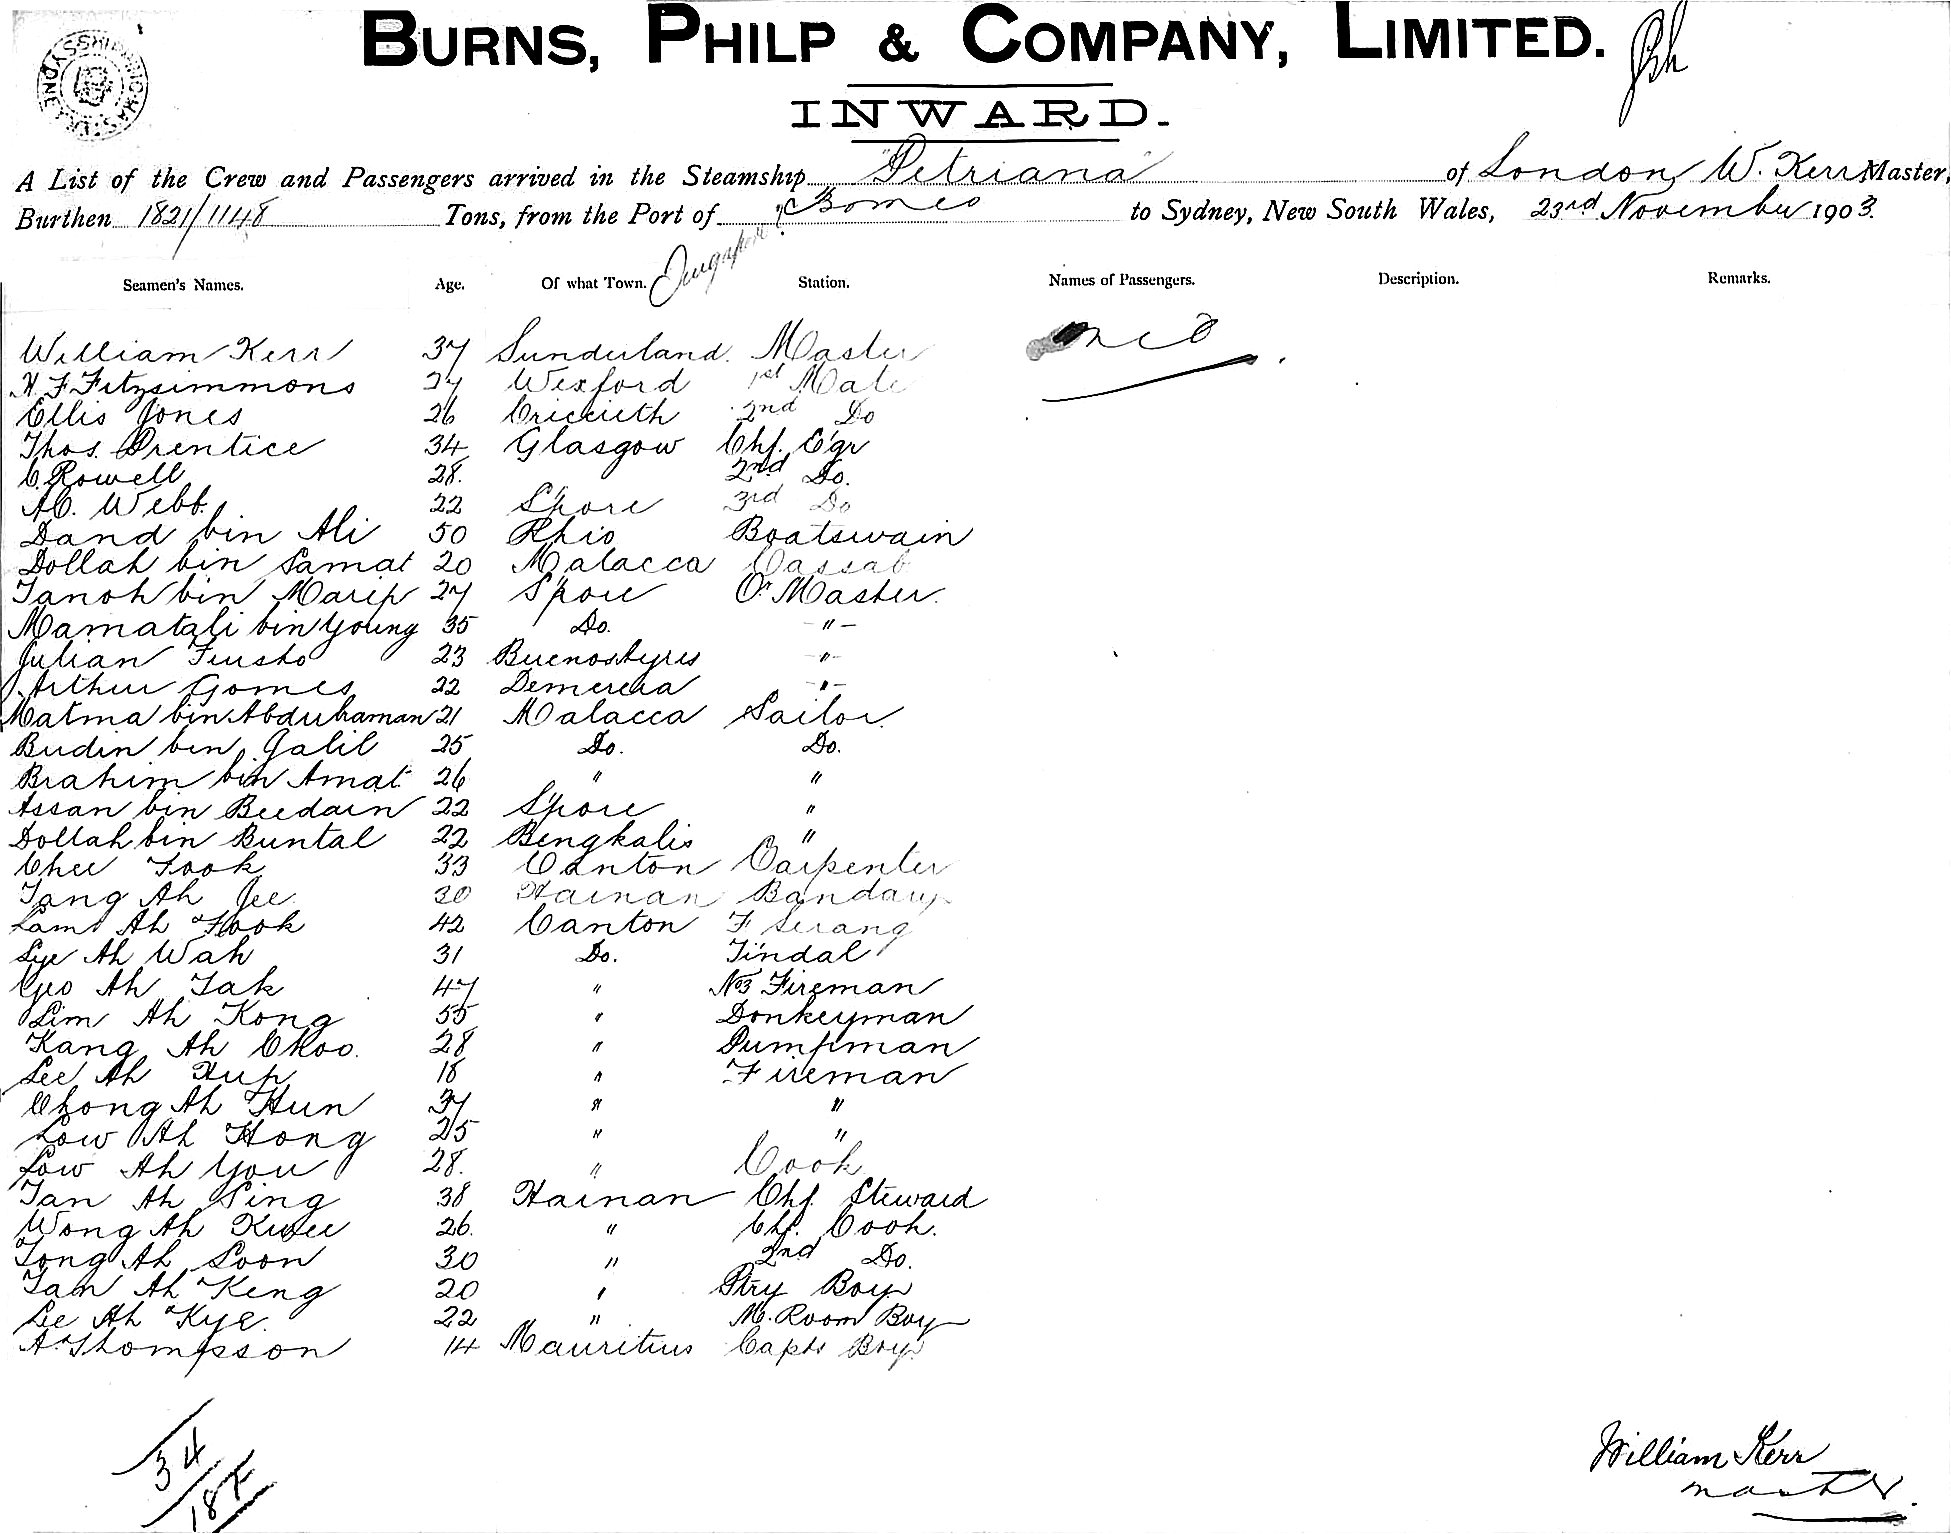 BURNS, PHILP & COMPANY, LIMITED.
INWARD.
A List of the Crew and Passengers arrived in the Steamship "Petriana" of London, W. Kerr Master,
Burthen 1821/1148 Tons, from the Port of Borneo to Sydney, New South Wales, 23rd November 1903
Seamen's Names. Age. Of what Town. Station. Names of Passengers. Description. Remarks.
William Kerr 37 Sunderland. Master
H. F. Fitzsimmons 27 Wexford 1st Mate
Ellis Jones 26 Criccieth 2nd Do
Thos. Prentice 34 Glasgow Chf. E'gr
C. Rowell 28. 2nd Do.
A.C. Webb. 22 S'pore 3rd Do
Dand bin Ali 50 Rhio Boatswain
Dollah bin Samat 20 Malacca Cassab
Tanoh bin Marip 27 S'pore Qr Master.
Mamatali bin Young 35 Do. "
Julian Fiusto 23 Buenos Ayres "
Arthur Gomes 22 Demerera "
Matma bin Abduhaman 21 Malacca Sailor.
Budin bin Galil 25 Do. Do.
Brahim bin Amat. 26 " "
Assan bin Beedain 22 S'pore "
Dollah bin Buntal 22 Bengkalis "
Chee Fook 33 Canton Carpenter
Tang Ah Jee 30 Hainan Bandary
Lam Ah Fook 42 Canton F Serang
Lye Ah Wah 31 Do. Tindal
Yeo Ah Tak 47 " No 3 Fireman
Lim Ah Kong 55 " Donkeyman
Kang Ah Choo. 28 " Pumpman
Lee Ah Hup 18 " Fireman
Chong Ah Hun 37 " "
Low Ah Hong 25 " "
Low Ah You 28. " Cook
Tan Ah Sing 38 Hainan Chf. Steward
Wong Ah Kwee 26. " Chf. Cook.
Tong Ah Soon 30 " 2nd Do.
Tan Ah Keng 20 " Ptry Boy
Lee Ah Kye. 22 " M. Room Boy
A. Thompson 14 Mauritius Capts Boy.
34
William Kerr
master